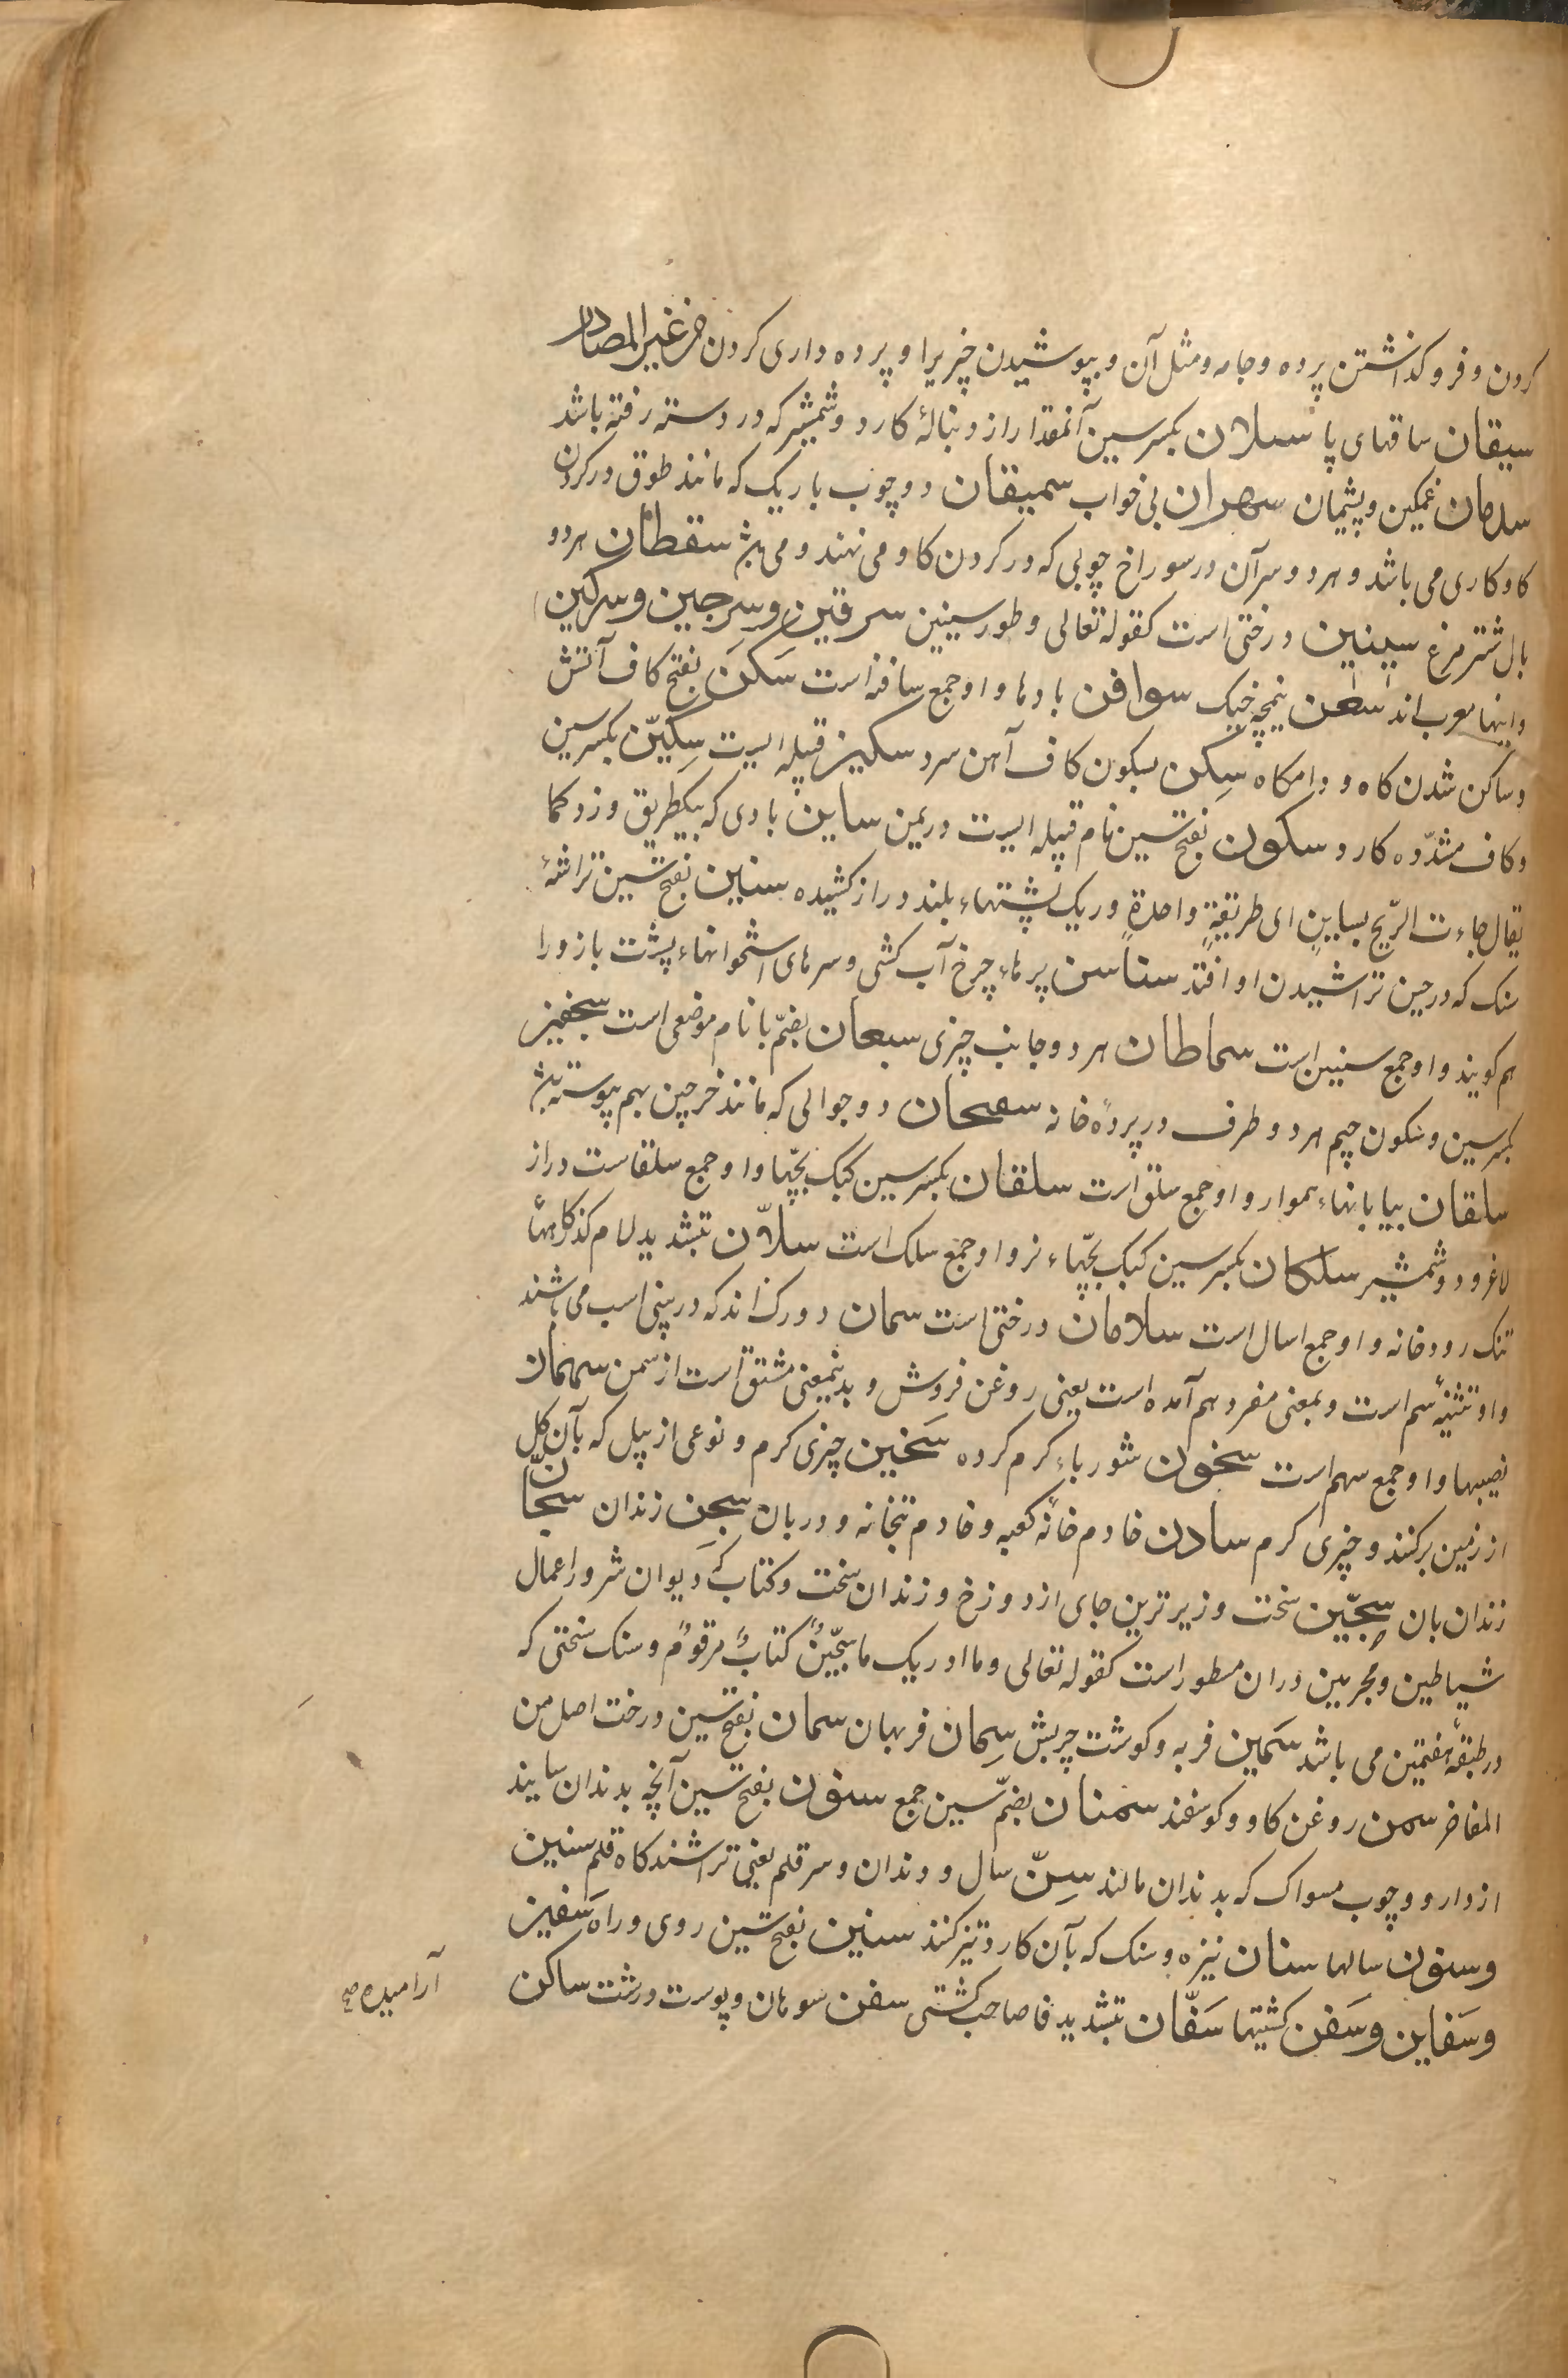 کردن و فرو کذاشتن پرده و جامه و مثل آن و بپوشیدن چیزیرا و پرده داری کردن من غیر المصادر
سیقان ساقهای پا سیلان بکسر سین آنمقدار از دنبالهٔ کارد و شمشیر که در دسته رفته باشد
سدمان غمکین و پشیمان سهران بی خواب سمیقان دو چوب باریک که مانند طوق در کردن
کاو کاری می باشد و هر دو سر آن در سوراخ چوبی که در کردن کاو می نهند و می سقطان هر دو
بال شتر مرغ سینین درختی است کقوله تعالی و طور سینین سرقین و سرجین و سرکین
و اینها معرب اند سعن نیمچه خیک سوافن بادها و او جمع سافنه است سَکَن بفتح کاف آتش
و ساکن شدن کاه و دامکاه سِکن بسکون کاف آهن سرد سکین قبیله ایست سِکیّن بکسر سین
و کاف مشدّده کارد سکون بفتح سین نام قبیله ایست در یمن ساین بادی که بیکطریق وزد کما
یقال جاءت الرّیح بساینٍ ای طریقةٍ واحدةٍ و ریک پشتهاء بلند دراز کشیده سنین بفتح سین تراشهٔ
سنک که در حین تراشیدن او افتد سناسن پرهاء چرخ آب کشی و سرهای استخوانهاء پشت بازو را
هم کویند و او جمع سنسن است سماطان هر دو جانب چیزی سبعان بضمّ با نام موضعی است سجفین
بکسر سین و سکون جیم هر دو طرف در پردهٔ خانه سفیحان دو جوالی که مانند خرجین بهم پیوسته
سلقان بیابانهاء هموار و او جمع سلق است سلقان بکسر سین کبک بچّها و او جمع سلقاست دراز
لاغر و دو شمشیر سلکان بکسر سین کبک بچّهاء نر و او جمع سلک است سلاّن بتشدید لام کذرکاههاء
تنک رودخانه و او جمع اسال است سلامان درختی است سمان دو رک اند که در بینی اسب می باشند
و او تثنیهٔ سم است و بمعنی مفرد هم آمده است یعنی روغن فروش و بدینمعنی مشتق است از سمن سهمان
نصیبها و او جمع سهم است سخون شورباء کرم کرده سَخین چیزی کرم و نوعی از بیل که بآن کل
از زمین برکنند و چیزی کرم سادن خادم خانهٔ کعبه و خادم بتخانه و دربان سجن زندان سجّان
زندان بان سِجّین سخت و زیر ترین جای از دوزخ و زندان سخت و کتاب که دیوان شر و اعمال
شیاطین و مجرمین دران مسطور است کقوله تعالی و ما ادریک ما سجّینٌ کتابٌ مرقومٌ و سنک سختی که
در طبقهٔ هفتمین می باشد سَمین فربه و کوشت چربش سِمان فربهان سمان بفتح سین درخت اصل من
المفاخر سمن روغن کاو و کوسفند سمنان بضمّ سین جمع سنون بفتح سین آنچه بدندان سایند
از دارو و چوب مسواک که بدندان مالند سِنّ سال و دندان و سر قلم یعنی تراشند کاه قلم سنین
و سنون سالها سنان نیزه و سنک که بآن کارد تیز کنند سنین بفتح سین روی و راه سَفین
و سَفاین و سَفن کشتیها سَفّان بتشدید فا صاحب کشتی سفن سوهان و پوست درشت ساکن
آرامیده صح